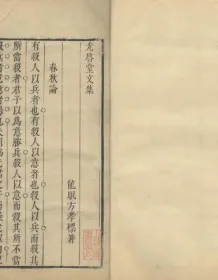 光啓堂文集
龍眠方孝標著
春秋論
有殺人以兵者也有殺人以意者也殺人以兵而殺其
所當殺者君子以為意勝兵殺人以意而殺其所不當